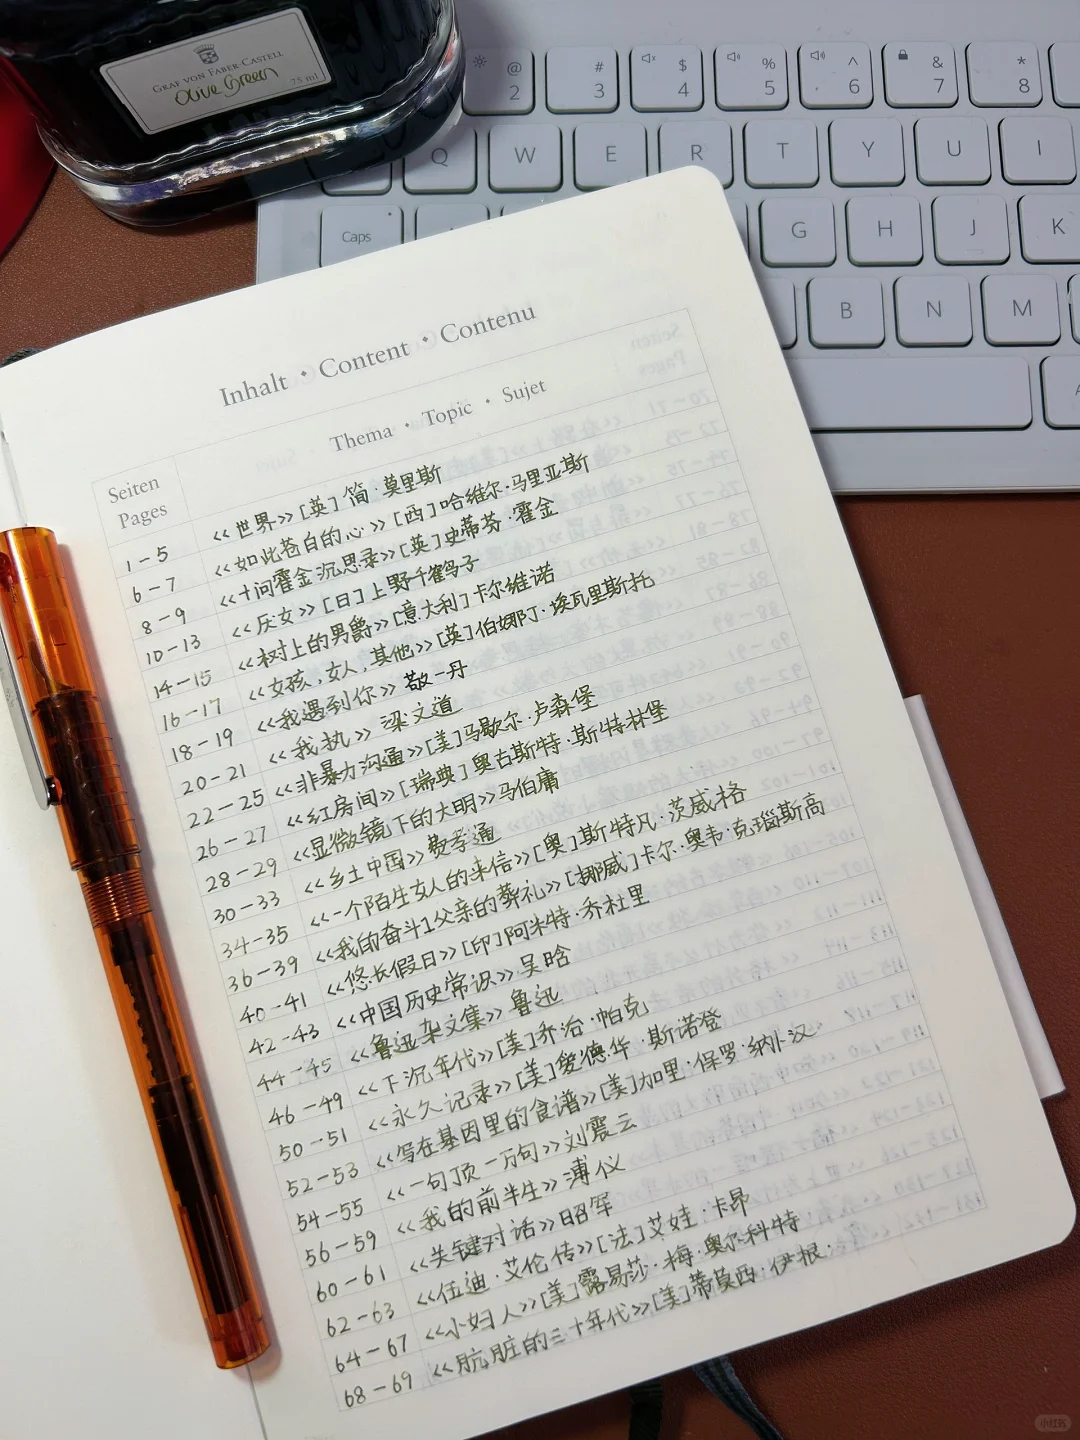 GRAF VON FABER-CASTELL
Olive Green
75 ml
@ 2 # 3 $ 4 % 5 ^ 6 & 7 * 8
Q W E R T Y U I
Caps G H J K
B N M
Inhalt · Content · Contenu
Seiten Pages Thema · Topic · Sujet
1-5 《世界》[英]简·莫里斯
6-7 《如此苍白的心》[西]哈维尔·马里亚斯
8-9 《十问霍金沉思录》[英]史蒂芬·霍金
10-13 《厌女》[日]上野千鹤子
14-15 《树上的男爵》[意大利]卡尔维诺
16-17 《女孩,女人,其他》[英]伯娜丁·埃瓦里斯托
18-19 《我遇到你》敬一丹
20-21 《我执》梁文道
22-25 《非暴力沟通》[美]马歇尔·卢森堡
26-27 《红房间》[瑞典]奥古斯特·斯特林堡
28-29 《显微镜下的大明》马伯庸
30-33 《乡土中国》费孝通
34-35 《一个陌生女人的来信》[奥]斯特凡·茨威格
36-39 《我的奋斗1父亲的葬礼》[挪威]卡尔·奥韦·克瑙斯高
40-41 《悠长假日》[印]阿米特·乔杜里
42-43 《中国历史常识》吴晗
44-45 《鲁迅杂文集》鲁迅
46-49 《下沉年代》[美]乔治·帕克
50-51 《永久记录》[美]爱德华·斯诺登
52-53 《写在基因里的食谱》[美]加里·保罗·纳卜汉
54-55 《一句顶一万句》刘震云
56-59 《我的前半生》溥仪
60-61 《关键对话》昭军
62-63 《伍迪·艾伦传》[法]艾娃·卡昂
64-67 《小妇人》[美]露易莎·梅·奥尔科特
68-69 《肮脏的三十年代》[美]蒂莫西·伊根
小红书